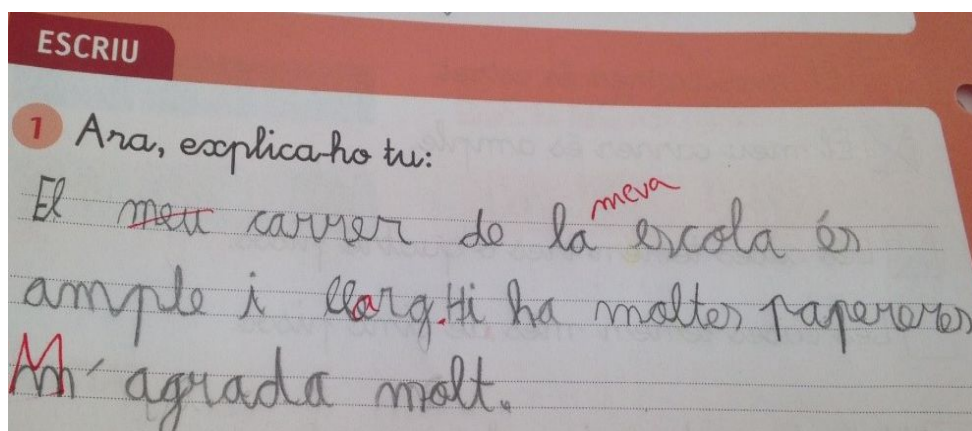 ESCRIU
1 Ara, explica-ho tu:
El meu carrer de la meva escola és
ample i llarg. Hi ha moltes papereres
M' agrada molt.